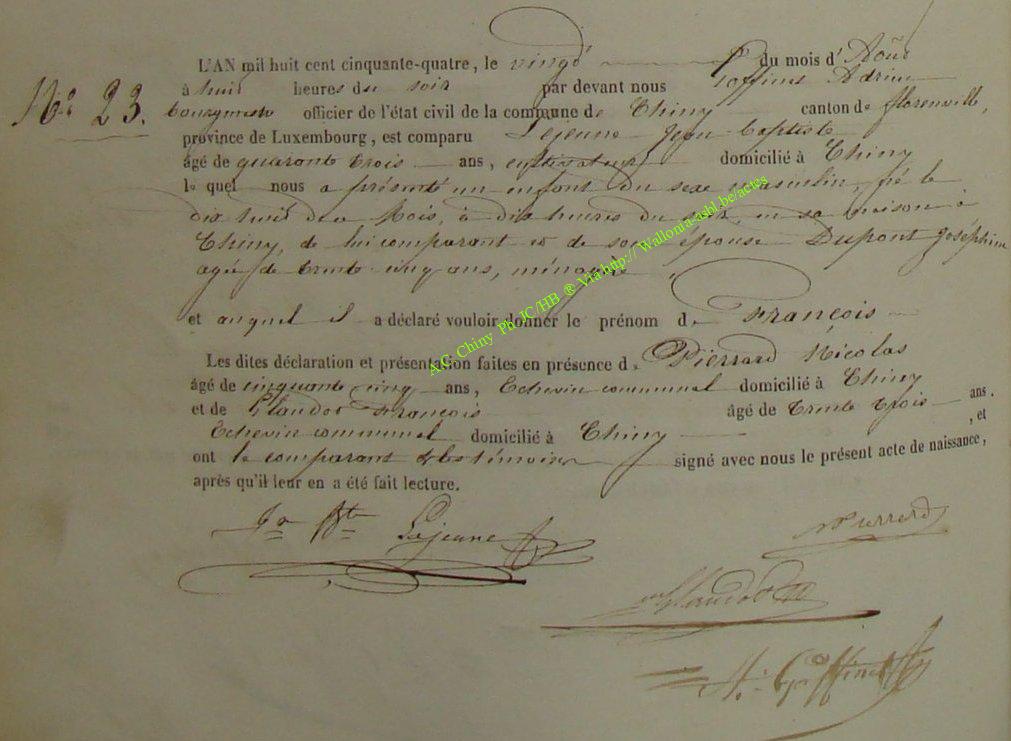 L'AN mil huit cent cinquante-quatre, le vingt du mois d' Août
N.° 23. à huit heures du soir par devant nous Goffinet Adrien
bourgmestre officier de l'état civil de la commune de Chiny canton de florenville,
province de Luxembourg, est comparu Lejeune Jean Baptiste
âgé de quarante trois ans, cultivateur domicilié à Chiny
le quel nous a présenté un enfant du sexe masculin, né le
dix huit du Mois, à dix heures du soir, en sa maison à
Chiny, de lui comparant et de son épouse Dupont Joséphine
agée de trente cinq ans, ménagère
et auquel il a déclaré vouloir donner le prénom de François
Les dites déclaration et présentation faites en présence de Pierrard Nicolas
âgé de cinquante cinq ans, Echevin communal domicilié à Chiny
et de Claudot François âgé de trente trois ans.
Echevin communal domicilié à Chiny , et
ont le comparant & les témoins signé avec nous le présent acte de naissance,
après qu'il leur en a été fait lecture.
Jn Bte Lejeune
NPierrard
Claudot
A. Goffinet
A.C. Chiny Ph JC/HB ® Via http://Wallonia-asbl.be/actes